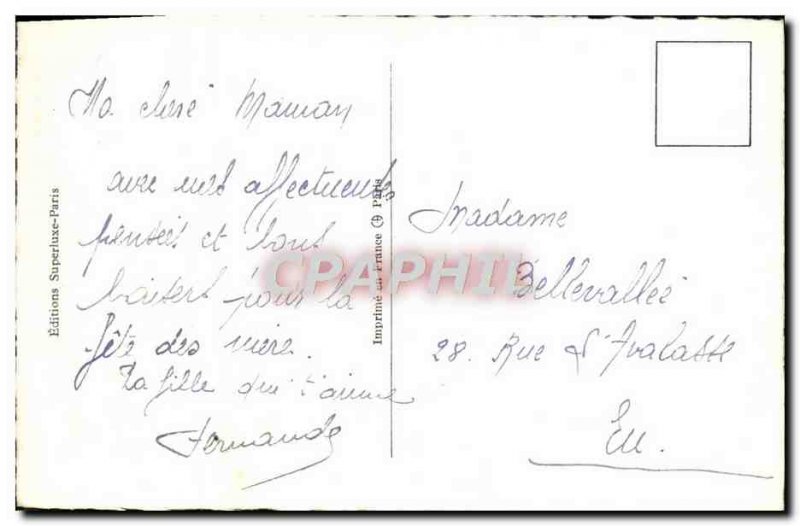 Ma cheré Maman
avec mes affectueuses
penseés et bons
baisers pour la
fête des mère.
Ta fille qui t'aime
Fernande
Madame
Bellevallée
28. Rue d'Avalasse
Eu.
Éditions Superluxe-Paris
Imprimé en France Paris
CPAPHIL